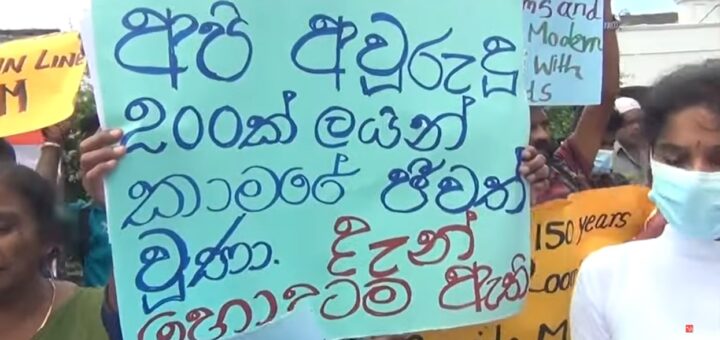 අපි අවුරුදු
200ක් ලයින්
කාමරේ ජීවත්
වුණා. දැන්
හොඳටම ඇති
IN LINE
M
ms and
Modern
With
150 years